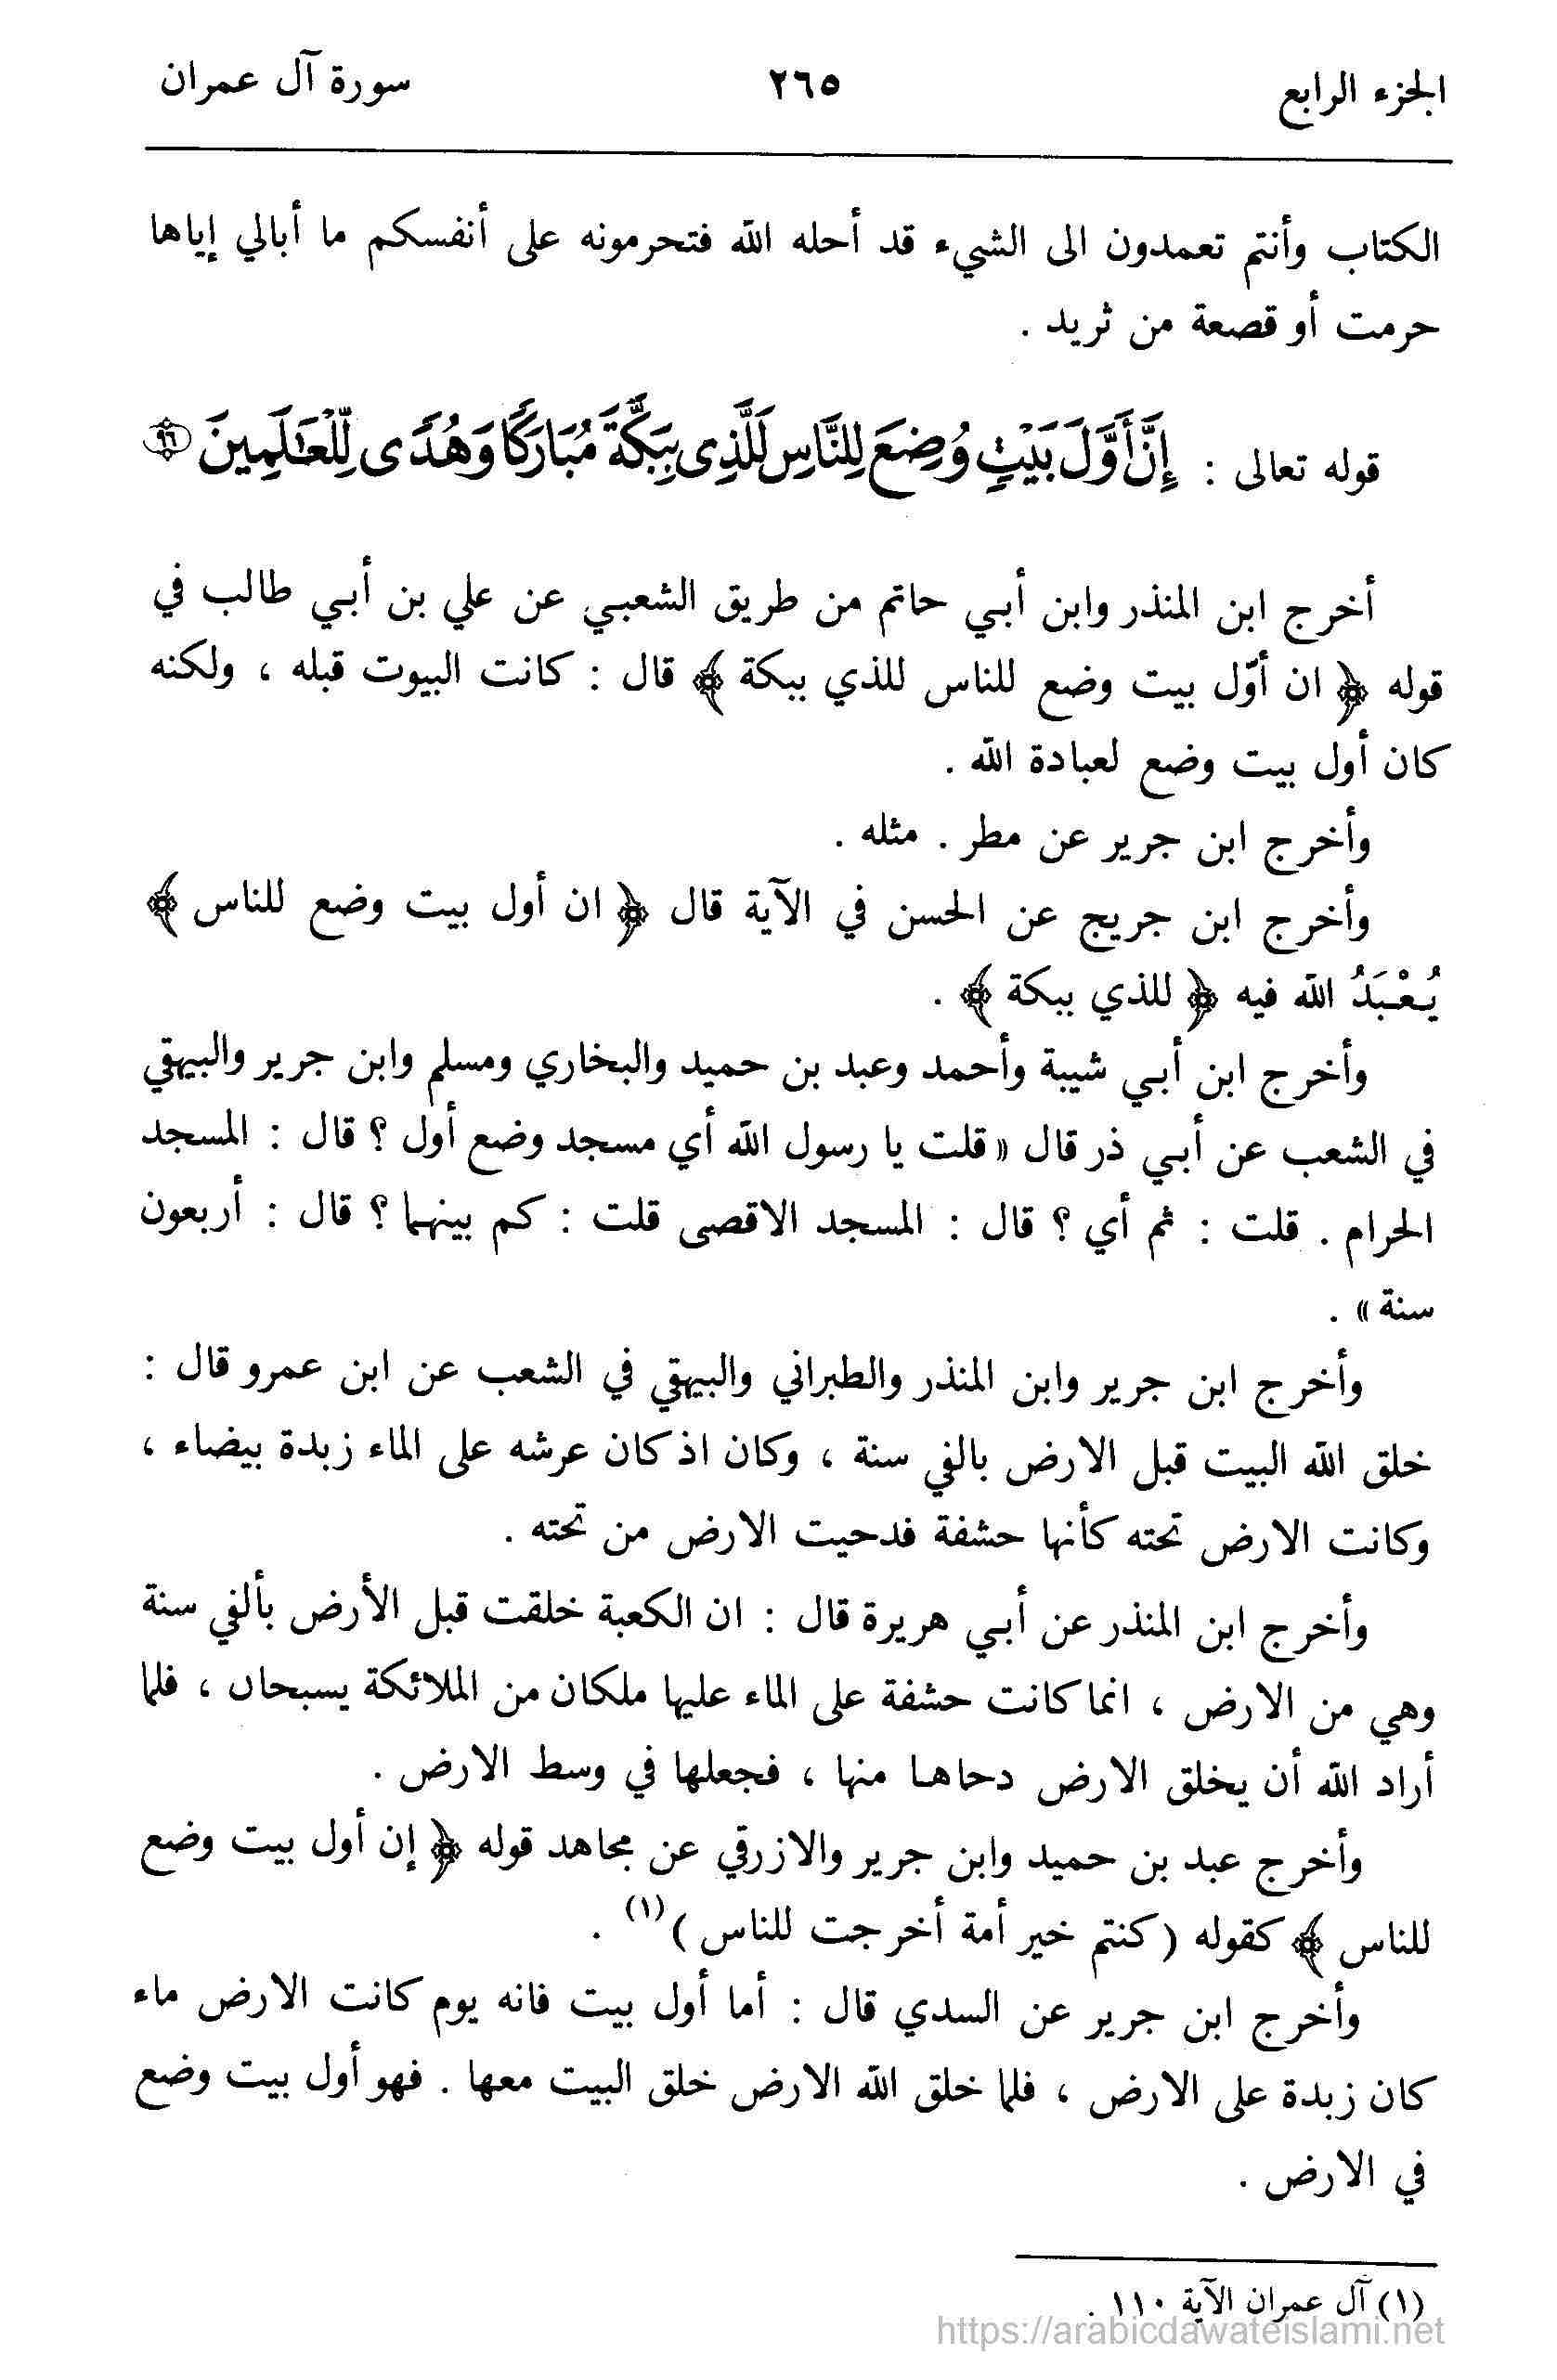 الجزء الرابع ٢٦٥ سورة آل عمران
الكتاب وأنتم تعمدون الى الشيء قد أحله الله فتحرمونه على أنفسكم ما أبالي إياها
حرمت أو قصعة من ثريد .
قوله تعالى : إِنَّ أَوَّلَ بَيْتٍ وُضِعَ لِلنَّاسِ لَلَّذِى بِبَكَّةَ مُبَارَكًا وَهُدًى لِّلْعَٰلَمِينَ ٩٦
أخرج ابن المنذر وابن أبي حاتم من طريق الشعبي عن علي بن أبي طالب في
قوله ﴿ ان أوّل بيت وضع للناس للذي ببكة ﴾ قال : كانت البيوت قبله ، ولكنه
كان أول بيت وضع لعبادة الله .
وأخرج ابن جرير عن مطر . مثله .
وأخرج ابن جريج عن الحسن في الآية قال ﴿ ان أول بيت وضع للناس ﴾
يُعْبَدُ الله فيه ﴿ للذي ببكة ﴾ .
وأخرج ابن أبي شيبة وأحمد وعبد بن حميد والبخاري ومسلم وابن جرير والبيهقي
في الشعب عن أبي ذر قال « قلت يا رسول الله أي مسجد وضع أول ؟ قال : المسجد
الحرام . قلت : ثم أي ؟ قال : المسجد الاقصى قلت : كم بينهما ؟ قال : أربعون
سنة » .
وأخرج ابن جرير وابن المنذر والطبراني والبيهقي في الشعب عن ابن عمرو قال :
خلق الله البيت قبل الارض بالفي سنة ، وكان اذ كان عرشه على الماء زبدة بيضاء ،
وكانت الارض تحته كأنها حشفة فدحيت الارض من تحته .
وأخرج ابن المنذر عن أبي هريرة قال : ان الكعبة خلقت قبل الأرض بألفي سنة
وهي من الارض ، انما كانت حشفة على الماء عليها ملكان من الملائكة يسبحان ، فلما
أراد الله أن يخلق الارض دحاها منها ، فجعلها في وسط الارض .
وأخرج عبد بن حميد وابن جرير والازرقي عن مجاهد قوله ﴿ إن أول بيت وضع
للناس ﴾ كقوله ( كنتم خير أمة أخرجت للناس )(١) .
وأخرج ابن جرير عن السدي قال : أما أول بيت فانه يوم كانت الارض ماء
كان زبدة على الارض ، فلما خلق الله الارض خلق البيت معها . فهو أول بيت وضع
في الارض .
(١) آل عمران الآية ١١٠ .
https://arabicdawateislami.net